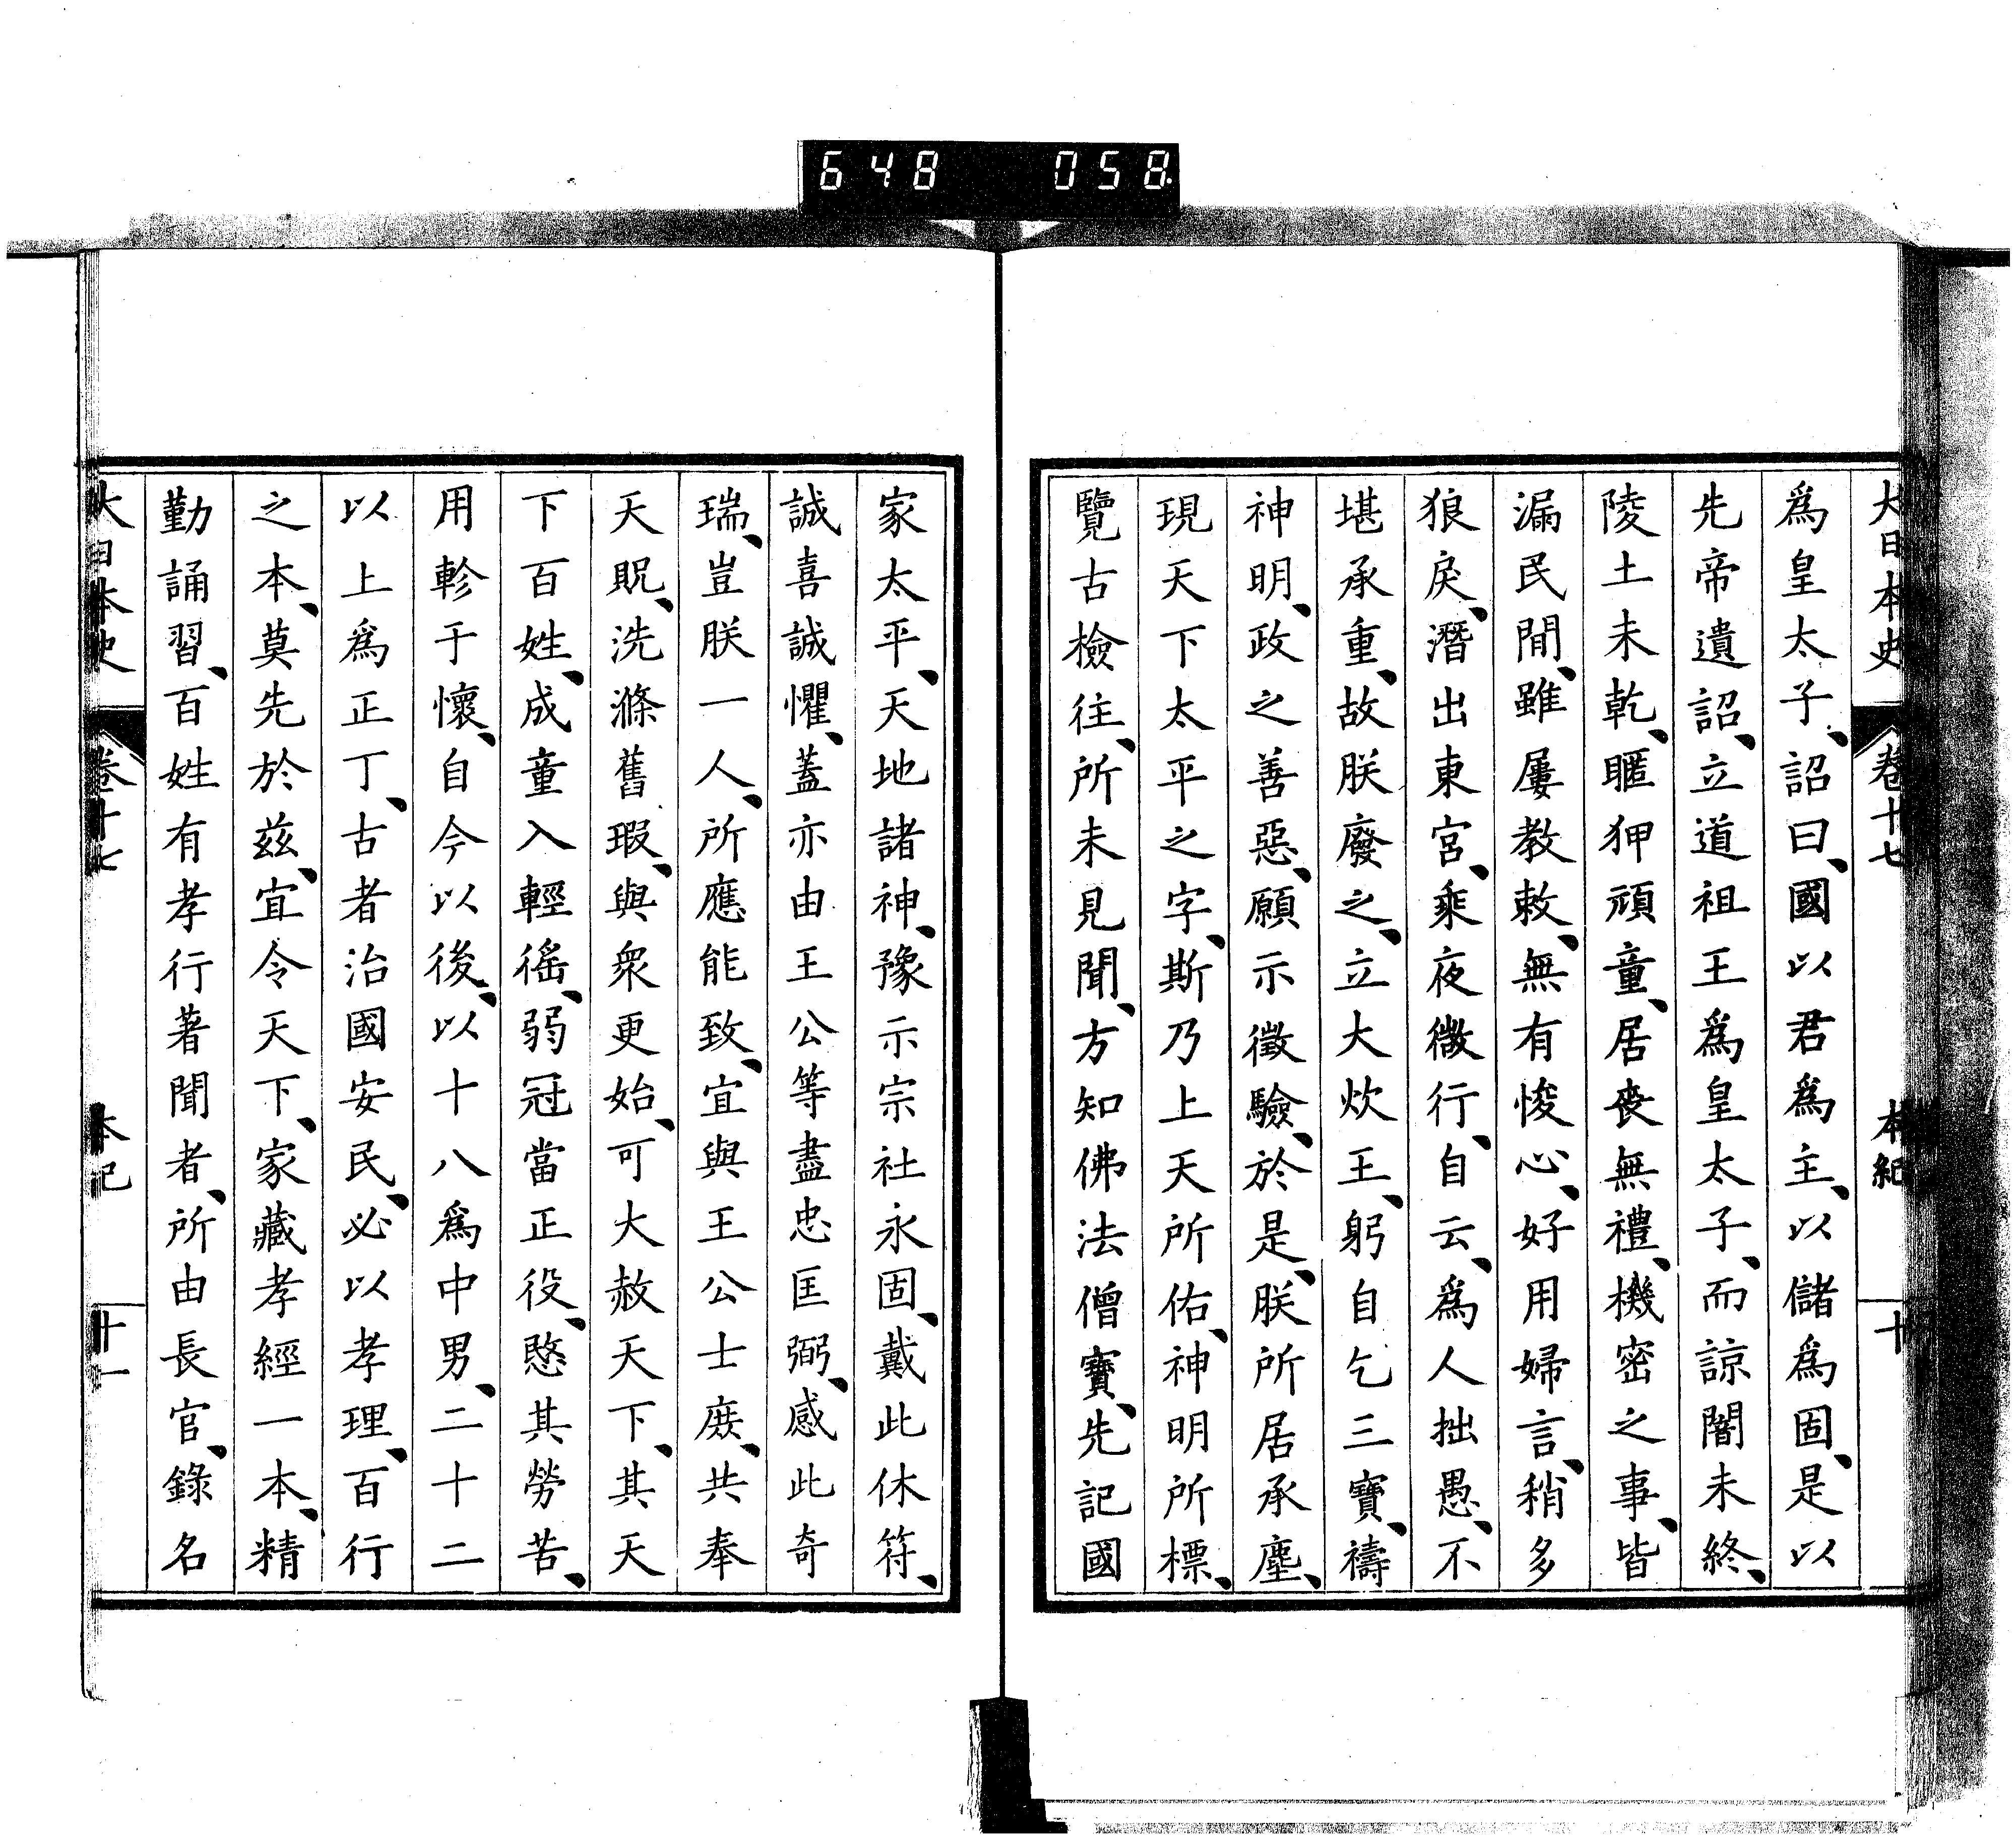 648 058
大日本史 卷十七 本紀 十
爲皇太子、詔曰、國以君爲主、以儲爲固、是以
先帝遺詔、立道祖王爲皇太子、而諒闇未終、
陵土未乾、暱狎頑童、居喪無禮、機密之事、皆
漏民間、雖屢教敕、無有悛心、好用婦言、稍多
狼戾、潛出東宮、乘夜微行、自云、爲人拙愚、不
堪承重、故朕廢之、立大炊王、躬自乞三寶、禱
神明、政之善惡、願示徵驗、於是、朕所居承塵、
現天下太平之字、斯乃上天所佑、神明所標、
覽古檢往、所未見聞、方知佛法僧寶、先記國
家太平、天地諸神、豫示宗社永固、戴此休符、
誠喜誠懼、蓋亦由王公等盡忠匡弼、感此奇
瑞、豈朕一人、所應能致、宜與王公士庶、共奉
天貺、洗滌舊瑕、與衆更始、可大赦天下、其天
下百姓、成童入輕徭、弱冠當正役、愍其勞苦、
用軫于懷、自今以後、以十八爲中男、二十二
以上爲正丁、古者治國安民、必以孝理、百行
之本、莫先於茲、宜令天下、家藏孝經一本、精
勤誦習、百姓有孝行著聞者、所由長官、錄名
大日本史 卷十七 本紀 十一